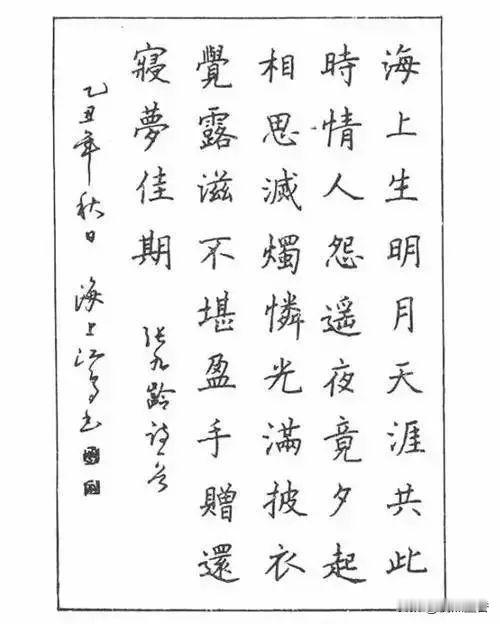 海上生明月天涯共此
時情人怨遥夜竟夕起
相思滅燭憐光滿披衣
覺露滋不堪盈手贈還
寢夢佳期
张九龄诗一首
乙丑年秋日 海上江鸟书